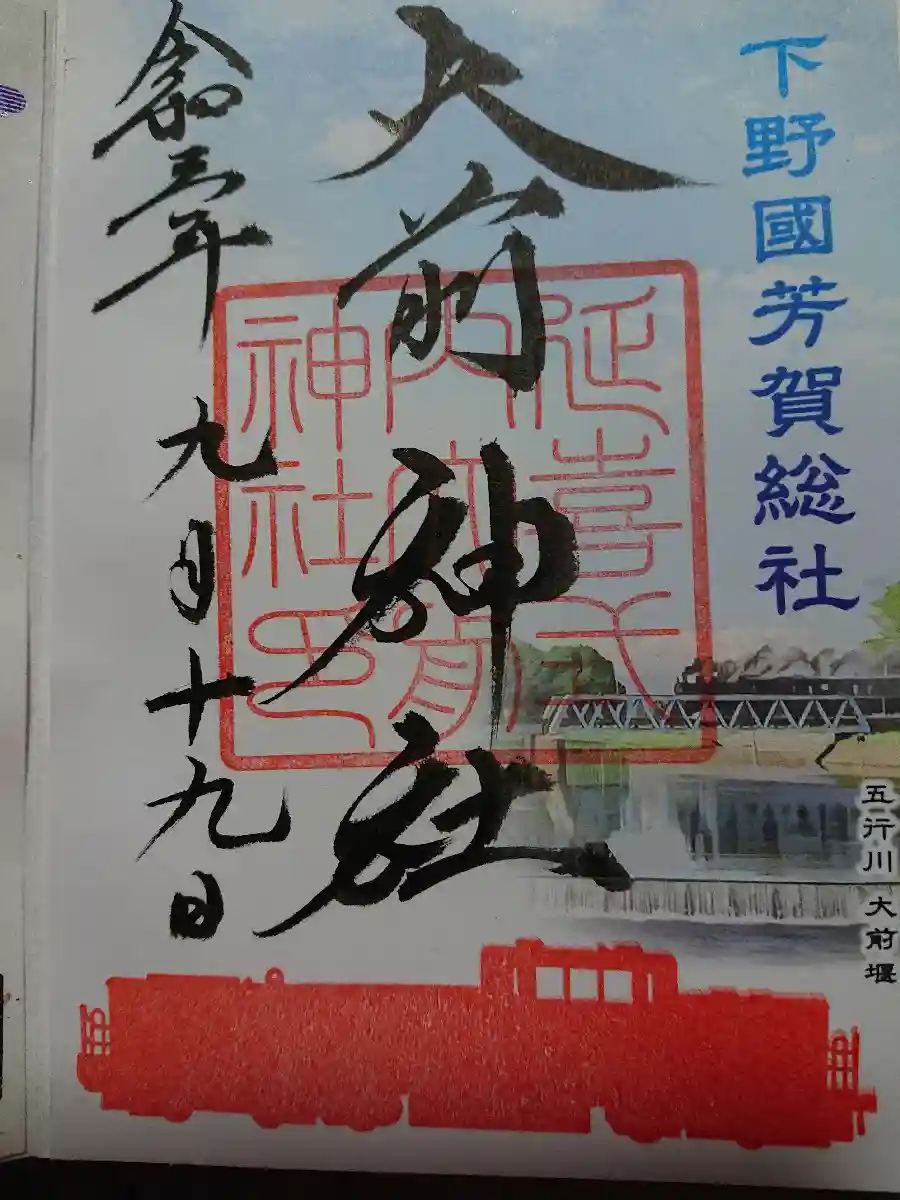 下野國芳賀総社
大前神社
延喜式
内大前
神社印
令和三年
九月十九日
五行川 大前堰